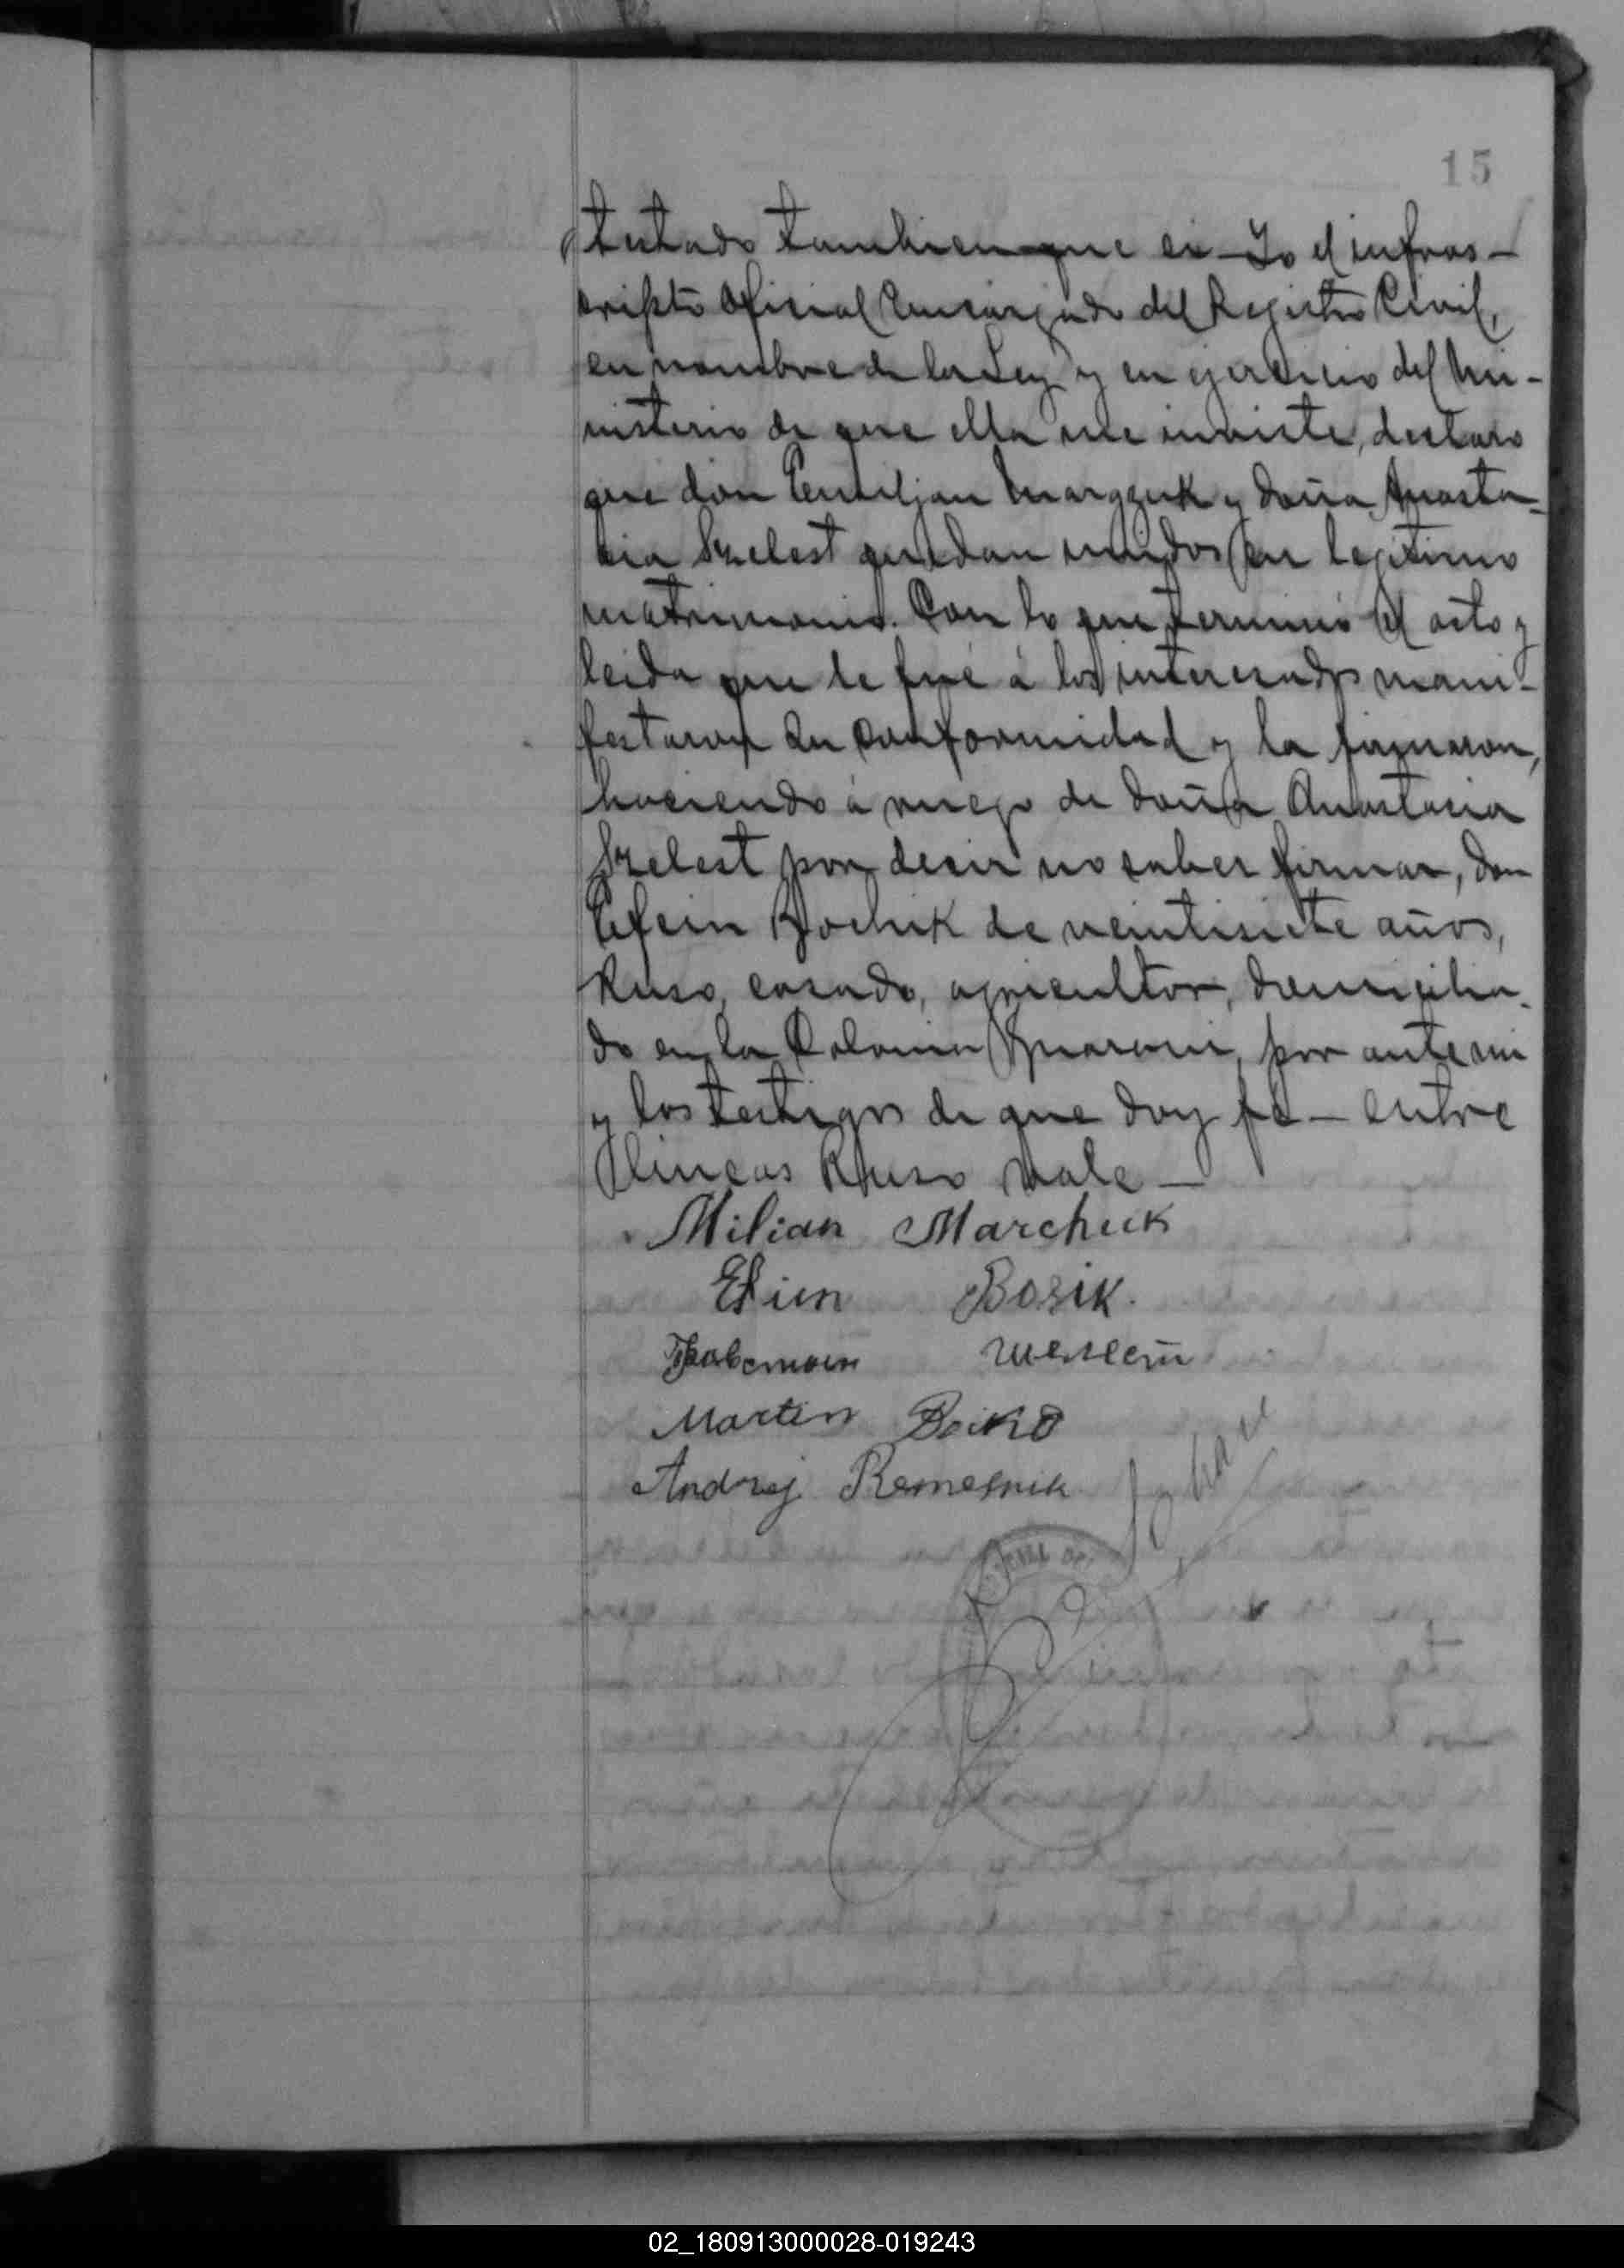 15
testado tambien que si – Yo el infras-
cripto Oficial Encargado del Registro Civil,
en nombre de la Ley y en ejercicio del Mi-
nisterio de que ella me inviste, declaro
que don Emiljan Margzuk y doña Anasta-
cia Szelest quedan unidos en legitimo
matrimonio. Con lo que terminó el acto y
leida que le fué á los interesados mani-
festaron su conformidad y la firmaron,
haciendo á ruego de doña Anastacia
Szelest por decir no saber firmar, don
Efein Bochik de veintisiete años,
Ruso, casado, agricultor, domicilia-
do en la Colonia Guarani, por ante mi
y los testigos de que doy fé – entre
lineas Ruso vale –
Milian Marchuk
Efien Bosik.
шелест
Martin Boiko
Andrej Remesnik
02_180913000028-019243